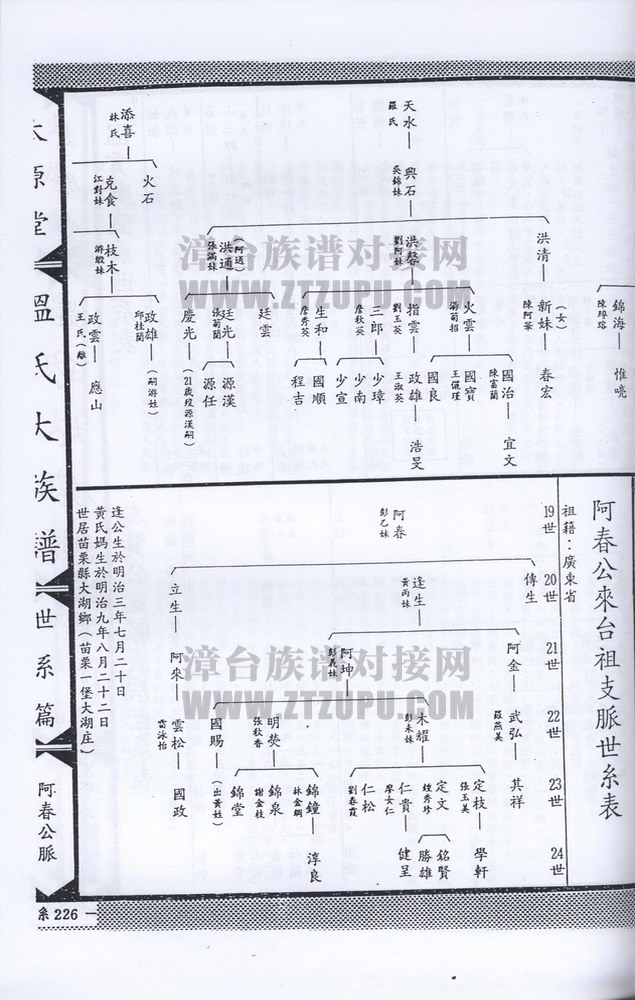 錦海
陳琗琮
惟喨
天水
羅氏
興石
吳錦妹
洪清
新妹
(女)
陳阿華
春宏
洪馨
劉阿妹
火雲
湯菊招
國治
陳富蘭
宜文
國寶
王儷瑾
國良
指雲
劉玉英
政雄
王淑英
浩旻
三郎
詹秋英
少璋
少南
生和
詹秀英
少宣
國順
程吉
洪通
(阿通)
張滿妹
廷雲
廷光
張菊蘭
源漢
源任
慶光
(21歲歿源漢嗣)
添喜
林氏
火石
克食
江對妹
枝木
游緞妹
政雄
邱桂蘭
(嗣游姓)
政雲
王氏(離)
應山
阿春公來台祖支脈世系表
祖籍:廣東省
19世
20世
21世
22世
23世
24世
阿春
彭乙妹
傳生
逢生
黃丙妹
立生
阿金
武弘
羅燕美
其祥
阿坤
彭義妹
木耀
彭永妹
定枝
張玉美
學軒
定文
鍾秀珍
銘賢
勝雄
仁貴
廖女仁
健呈
仁松
劉春霞
明熒
張秋香
錦鐘
林金綢
淳良
錦泉
謝金枝
錦堂
國賜
(出黃姓)
阿來
雲松
雷泳怡
國政
逢公生於明治三年七月二十日
黃氏媽生於明治九年八月二十二日
世居苗栗縣大湖鄉(苗栗一堡大湖庄)
太原堂
溫氏大族譜
世系篇
阿春公脈
系 226 一
漳台族谱对接网
WWW.ZTZUPU.COM
漳台族谱对接网
WWW.ZTZUPU.COM